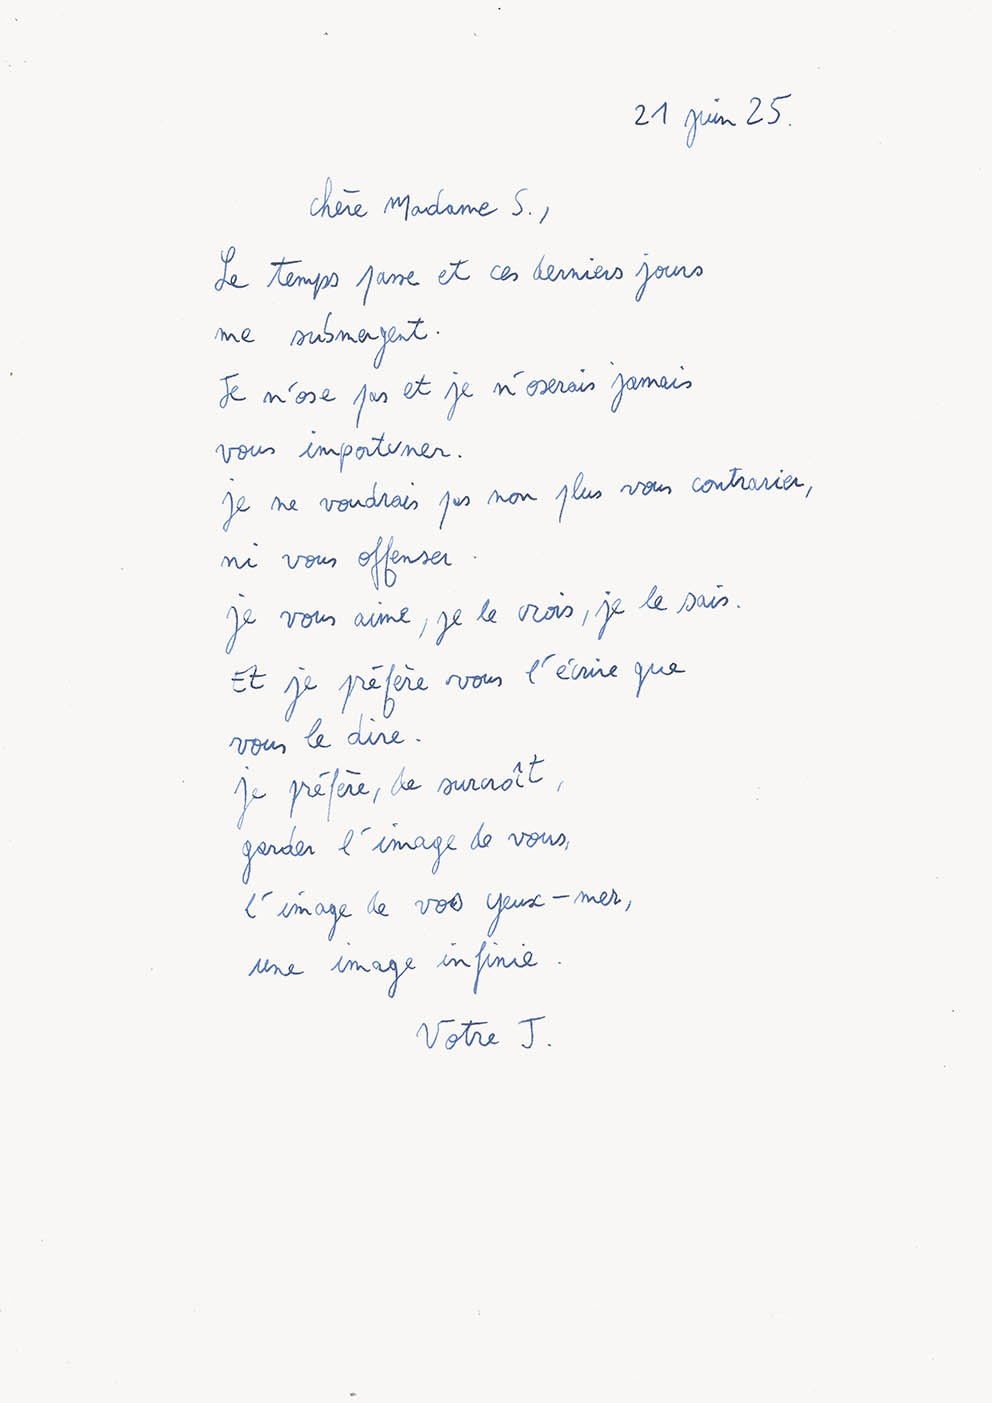 21 juin 25.
Chère Madame S.,
Le temps passe et ces derniers jours
me submergent.
Je n'ose pas et je n'oserais jamais
vous importuner.
je ne voudrais pas non plus vous contrarier,
ni vous offenser.
je vous aime, je le crois, je le sais.
Et je préfère vous l'écrire que
vous le dire.
je préfère, de surcroît,
garder l'image de vous,
l'image de vos yeux-mer,
une image infinie.
Votre J.